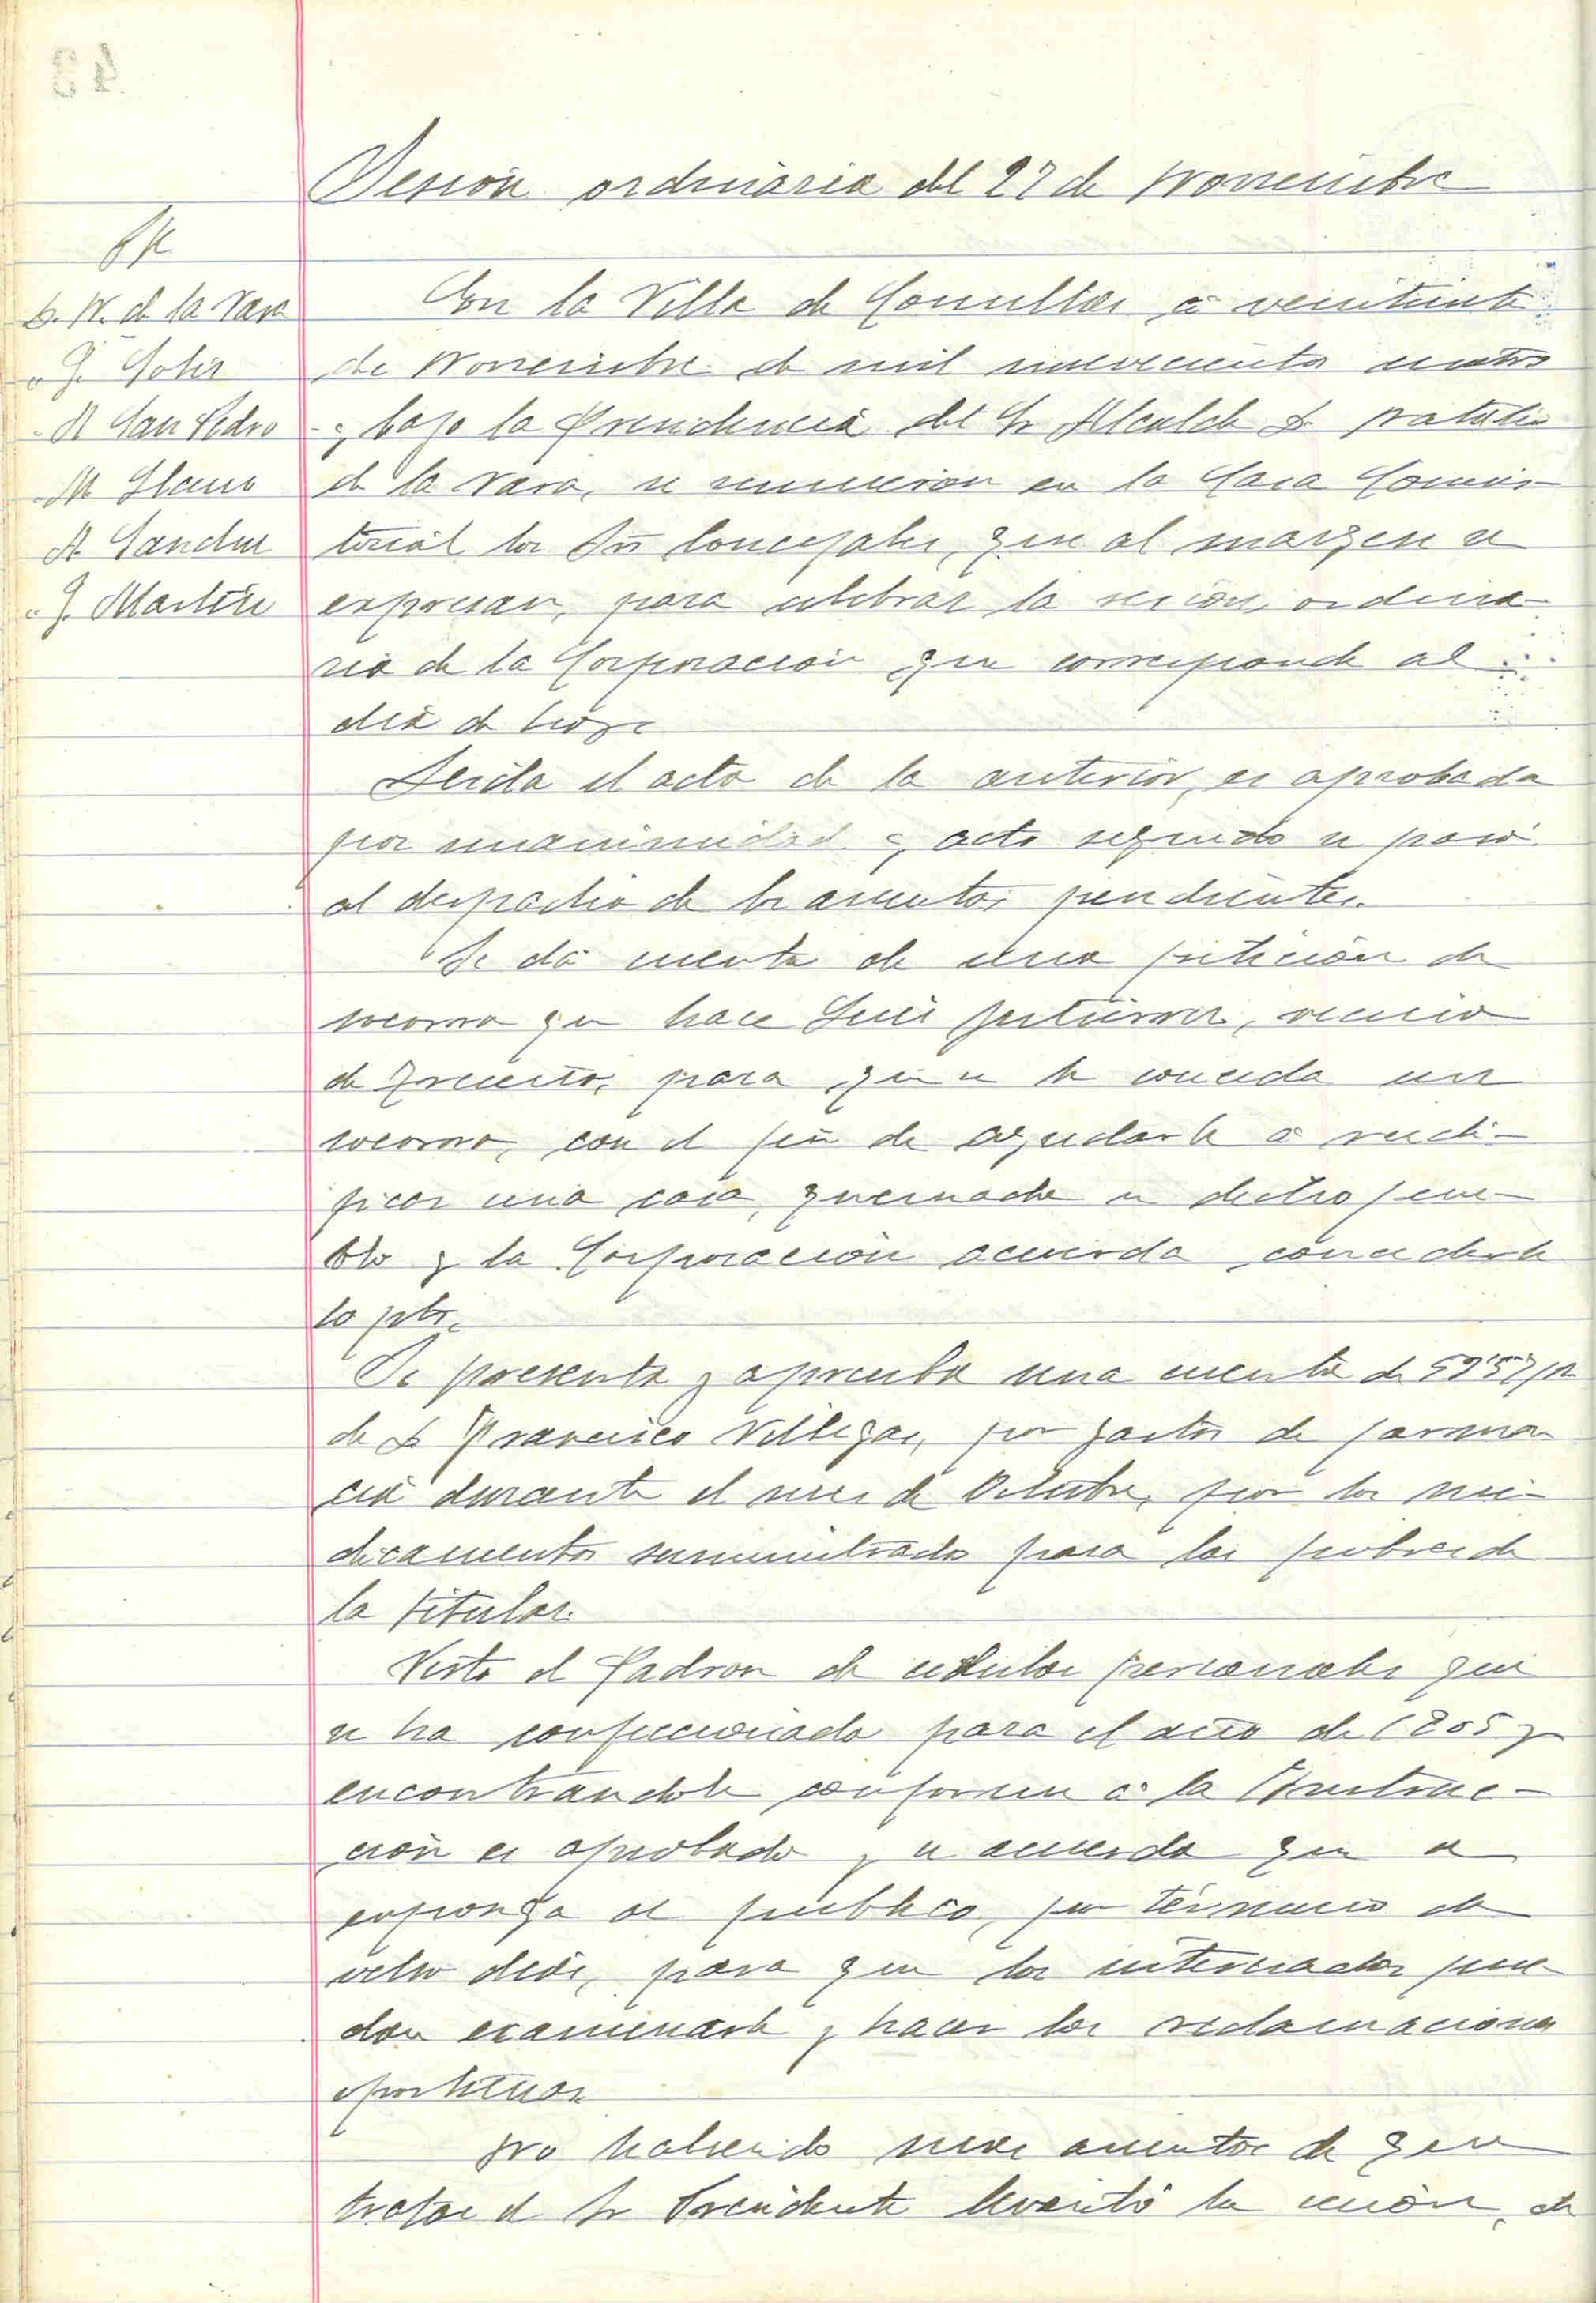 43
Sesión ordinaria del 27 de Noviembre
SS.
D. N. de la Vara
" J. Soler
" A San Pedro
" M Llano
" A. Sanchez
" J. Martín
En la Villa de Comillas á veintisiete
de Noviembre de mil novecientos cuatro
y bajo la Presidencia del Sr Alcalde D. Natalio
de la Vara, se reunieron en la Casa Consis-
torial los Sres Concejales, que al margen se
expresan, para celebrar la sesión ordina-
ria de la Corporación que corresponde al
día de hoy.
Leida el acta de la anterior, es aprobada
por unanimidad y acto seguido se pasó
al despacho de los asuntos pendientes.
Se dá cuenta de una petición de
socorro que hace Luis Gutierrez, vecino
de , para que se le conceda un
socorro, con el fin de ayudarle á reedi-
ficar una casa, quemada en dicho pue-
blo y la Corporación acuerda concederle
10 pts.
Se presenta y aprueba una cuenta de
de D Francisco Villegas, por gastos de farma-
cia durante el mes de Octubre, por los me-
dicamentos suministrados para los pobres de
la titular.
Visto el Padron de cedulas personales que
se ha confeccionado para el año de 1905 y
encontrandole conforme á la Instruc-
ción es aprobado y se acuerda que se
exponga al publico, por término de
ocho días, para que los interesados pue-
dan examinarle y hacer las reclamaciones
oportunas.
No habiendo mas asuntos de que
tratar el Sr Presidente levantó la sesión, de